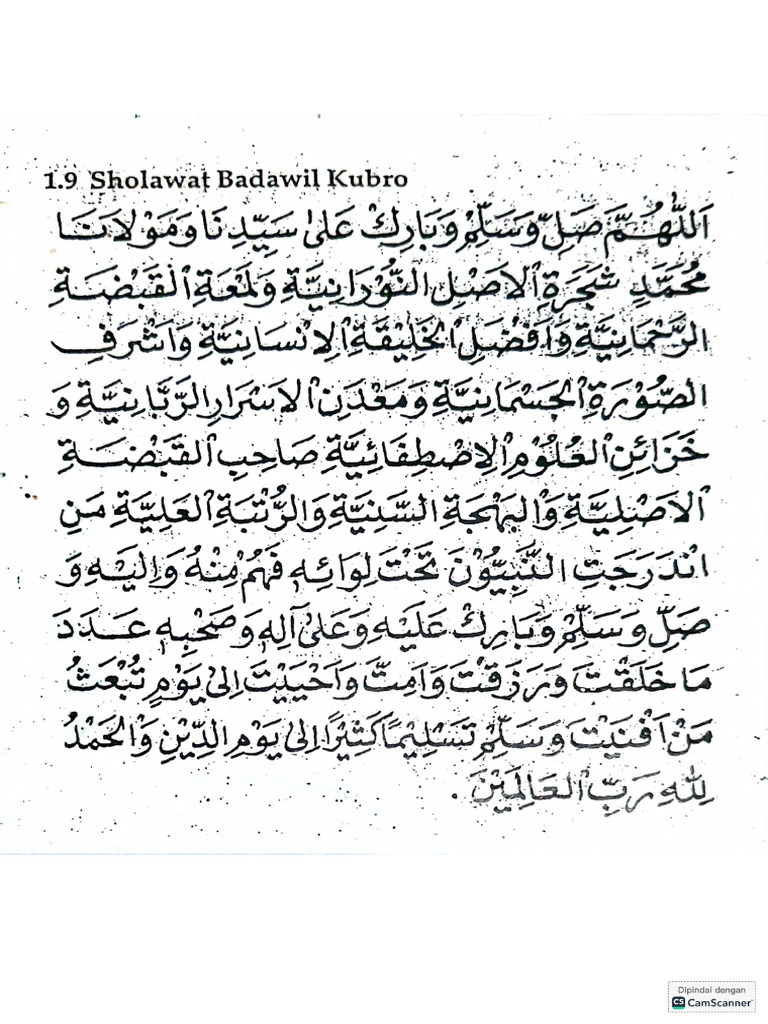 1.9 Sholawat Badawil Kubro
اَللّٰهُمَّ صَلِّ وَسَلِّمْ وَبَارِكْ عَلٰى سَيِّدِنَا وَمَوْلَانَا
مُحَمَّدٍ شَجَرَةِ الْاَصْلِ النُّوْرَانِيَّةِ وَلَمْعَةِ الْقَبْضَةِ
الرَّحْمَانِيَّةِ وَاَفْضَلِ الْخَلِيْقَةِ الْاِنْسَانِيَّةِ وَاَشْرَفِ
الصُّوْرَةِ الْجَسْمَانِيَّةِ وَمَعْدَنِ الْاَسْرَارِ الرَّبَّانِيَّةِ وَ
خَزَائِنِ الْعُلُوْمِ الْاِصْطِفَائِيَّةِ صَاحِبِ الْقَبْضَةِ
الْاَصْلِيَّةِ وَالْبَهْجَةِ السَّنِيَّةِ وَالرُّتْبَةِ الْعَلِيَّةِ مَنِ
انْدَرَجَتِ النَّبِيُّوْنَ تَحْتَ لِوَائِهِ فَهُمْ مِنْهُ وَاِلَيْهِ وَ
صَلِّ وَسَلِّمْ وَبَارِكْ عَلَيْهِ وَعَلٰى آلِهِ وَصَحْبِهِ عَدَدَ
مَا خَلَقْتَ وَرَزَقْتَ وَاَمَتَّ وَاَحْيَيْتَ اِلٰى يَوْمٍ تُبْعَثُ
مَنْ اَفْنَيْتَ وَسَلِّمْ تَسْلِيْمًا كَثِيْرًا اِلٰى يَوْمِ الدِّيْنِ وَالْحَمْدُ
لِلّٰهِ رَبِّ الْعَالَمِيْنَ .
Dipindai dengan
CS CamScanner